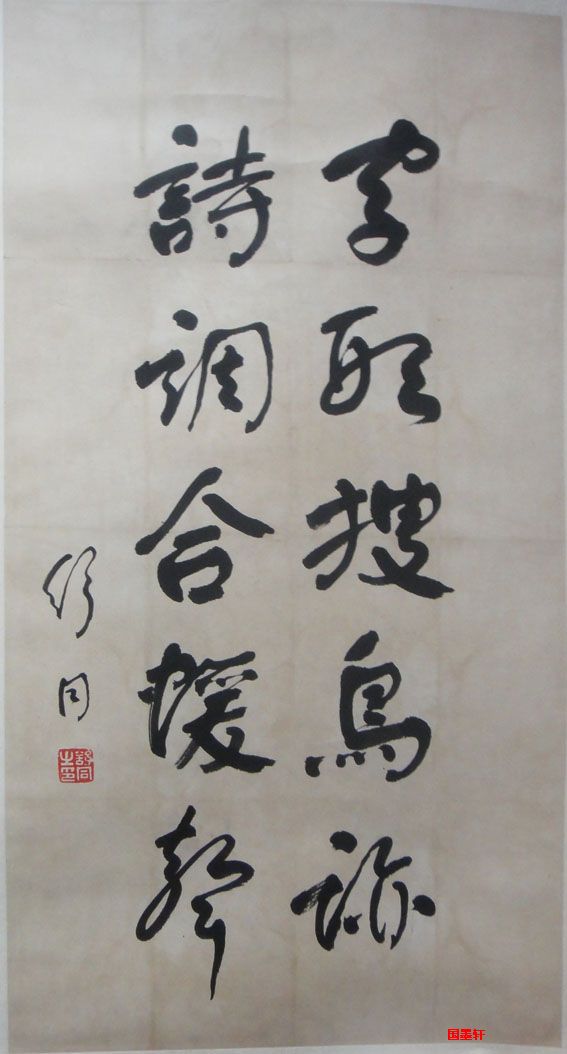 字形搜鳥跡
詩調合猨聲
舒同
舒同之印
国墨轩